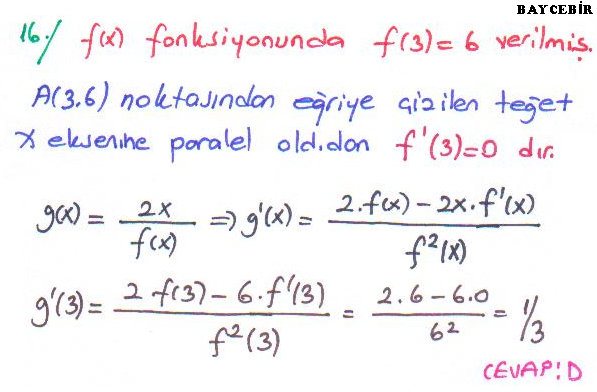 BAYCEBİR
16./ f(x) fonksiyonunda f(3)=6 verilmiş.
A(3.6) noktasından eğriye çizilen teğet
x eksenine paralel old.dan f'(3)=0 dır.
g(x) = 2x / f(x) ⇒ g'(x) = 2.f(x) - 2x.f'(x) / f²(x)
g'(3) = 2 f(3) - 6.f'(3) / f²(3) = 2.6 - 6.0 / 6² = 1/3
CEVAP:D